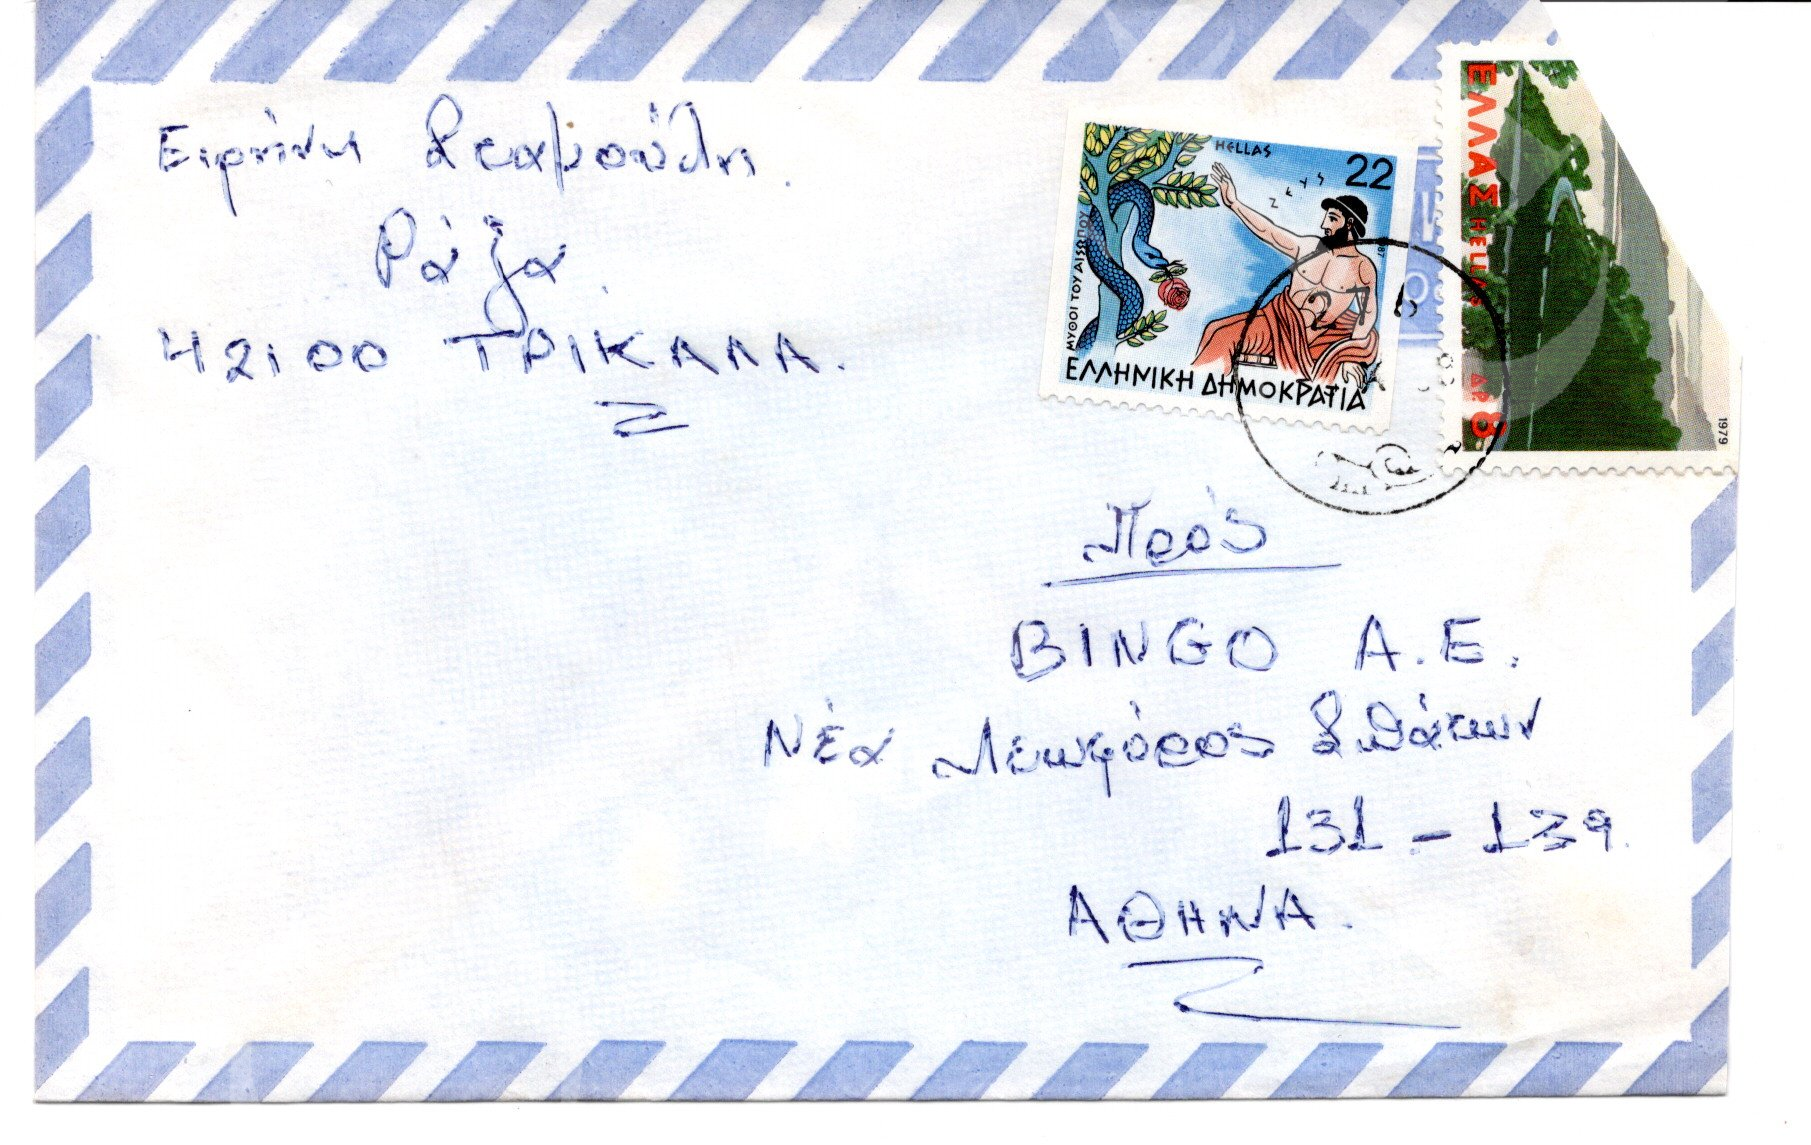 Ειρήνη Σταμούλη.
Ράξα
42100 ΤΡΙΚΑΛΑ.
HELLAS
22
ΖΕΥΣ
ΜΥΘΟΙ ΤΟΥ ΑΙΣΩΠΟΥ
ΕΛΛΗΝΙΚΗ ΔΗΜΟΚΡΑΤΙΑ
ΕΛΛΑΣ HELLAS ΔΡ. 8
1979
27
Πρός
BINGO A.E.
Νέα Λεωφόρος Σπάτων
131-139.
ΑΘΗΝΑ.